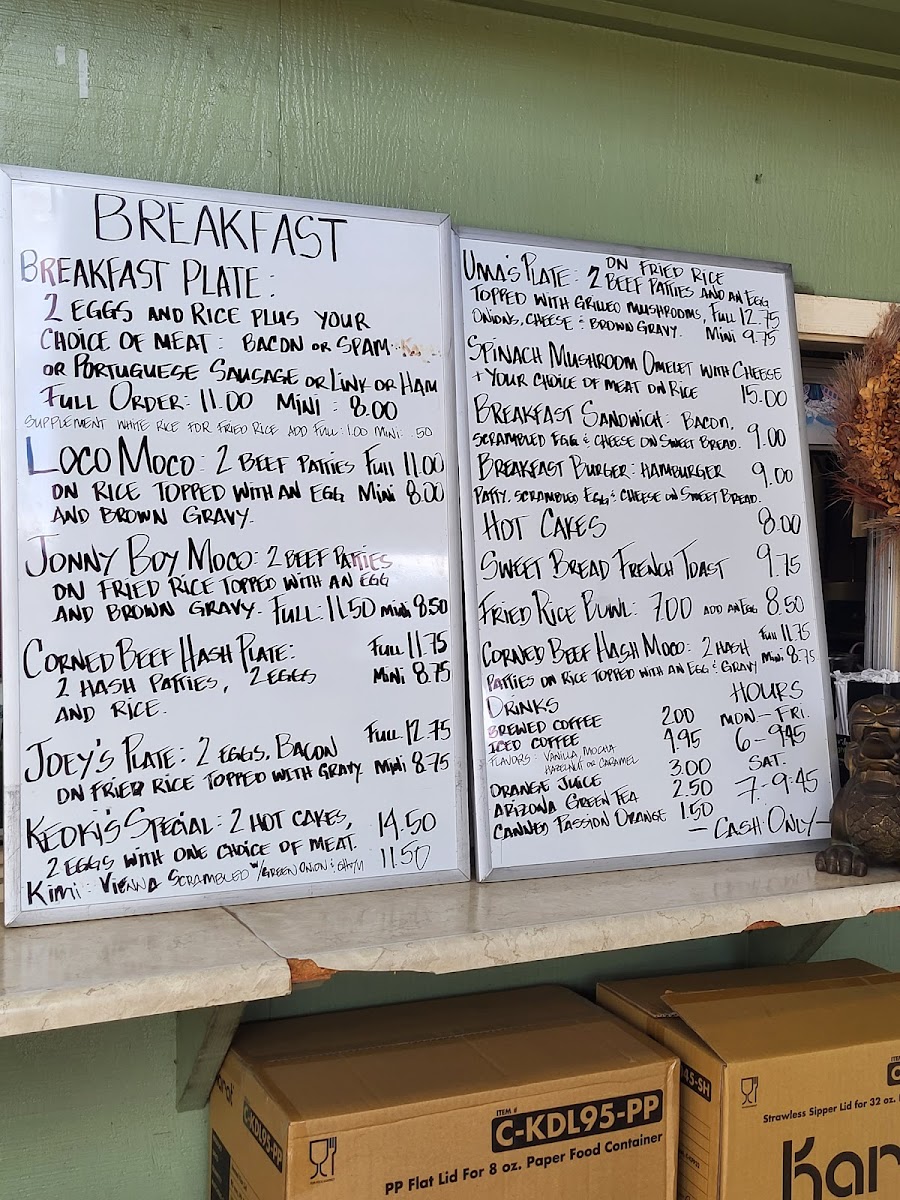 BREAKFAST
BREAKFAST PLATE:
2 EGGS AND RICE PLUS YOUR
CHOICE OF MEAT: BACON OR SPAM
OR PORTUGUESE SAUSAGE OR LINK OR HAM
FULL ORDER: 11.00 MINI: 8.00
SUPPLEMENT WHITE RICE FOR FRIED RICE ADD FULL: 1.00 MINI: .50
LOCO MOCO: 2 BEEF PATTIES FULL 11.00
ON RICE TOPPED WITH AN EGG MINI 8.00
AND BROWN GRAVY.
JONNY BOY MOCO: 2 BEEF PATTIES
ON FRIED RICE TOPPED WITH AN EGG
AND BROWN GRAVY. FULL: 11.50 MINI 8.50
CORNED BEEF HASH PLATE: FULL 11.75
2 HASH PATTIES, 2 EGGS MINI 8.75
AND RICE.
JOEY'S PLATE: 2 EGGS, BACON FULL 12.75
ON FRIED RICE TOPPED WITH GRAVY MINI 8.75
KEOKI'S SPECIAL: 2 HOT CAKES, 14.50
2 EGGS WITH ONE CHOICE OF MEAT.
KIMI: VIENNA SCRAMBLED W/GREEN ONION & SHOYU 11.50
UMA'S PLATE: 2 BEEF PATTIES AND AN EGG
ON FRIED RICE
TOPPED WITH GRILLED MUSHROOMS, FULL 12.75
ONIONS, CHEESE & BROWN GRAVY. MINI 9.75
SPINACH MUSHROOM OMELET WITH CHEESE
+ YOUR CHOICE OF MEAT ON RICE 15.00
BREAKFAST SANDWICH: BACON,
SCRAMBLED EGG & CHEESE ON SWEET BREAD. 9.00
BREAKFAST BURGER: HAMBURGER 9.00
PATTY, SCRAMBLED EGG & CHEESE ON SWEET BREAD.
HOT CAKES 8.00
SWEET BREAD FRENCH TOAST 9.75
FRIED RICE BOWL: 7.00 ADD AN EGG 8.50
CORNED BEEF HASH MOCO: 2 HASH FULL 11.75
PATTIES ON RICE TOPPED WITH AN EGG & GRAVY MINI 8.75
DRINKS
BREWED COFFEE 2.00
ICED COFFEE 4.95
FLAVORS: VANILLA, MOCHA
HAZELNUT OR CARAMEL
ORANGE JUICE 3.00
ARIZONA GREEN TEA 2.50
CANNED PASSION ORANGE 1.50
HOURS
MON - FRI.
6 - 9:45
SAT.
7 - 9:45
- CASH ONLY -
Karat
C-KDL95-PP
ITEM #
C-KDL95-PP
PP Flat Lid For 8 oz. Paper Food Container
45-SH
ITEM
C
Strawless Sipper Lid for 32 oz.
Kar